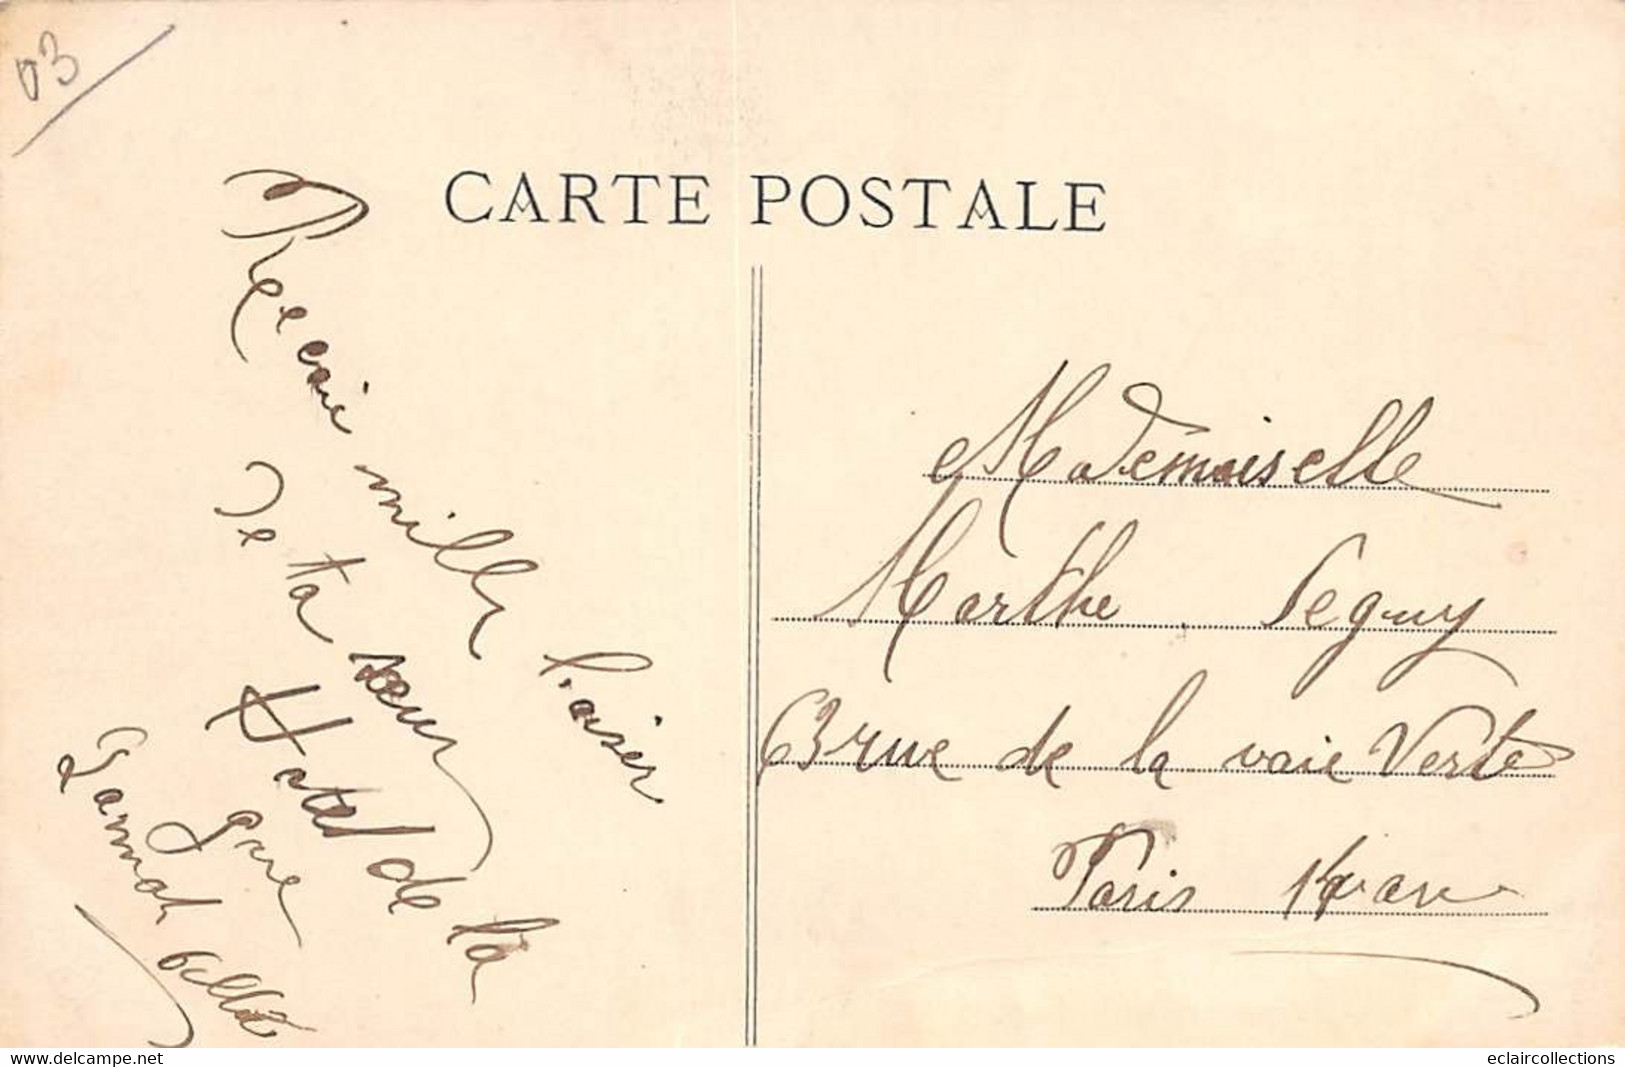 03
CARTE POSTALE
Recoie mille baiser
de ta seur
Hotel de la
gare
Gannat
Mademoiselle
Marthe Seguy
63 rue de la voie Verte
Paris 14
eclaircollections